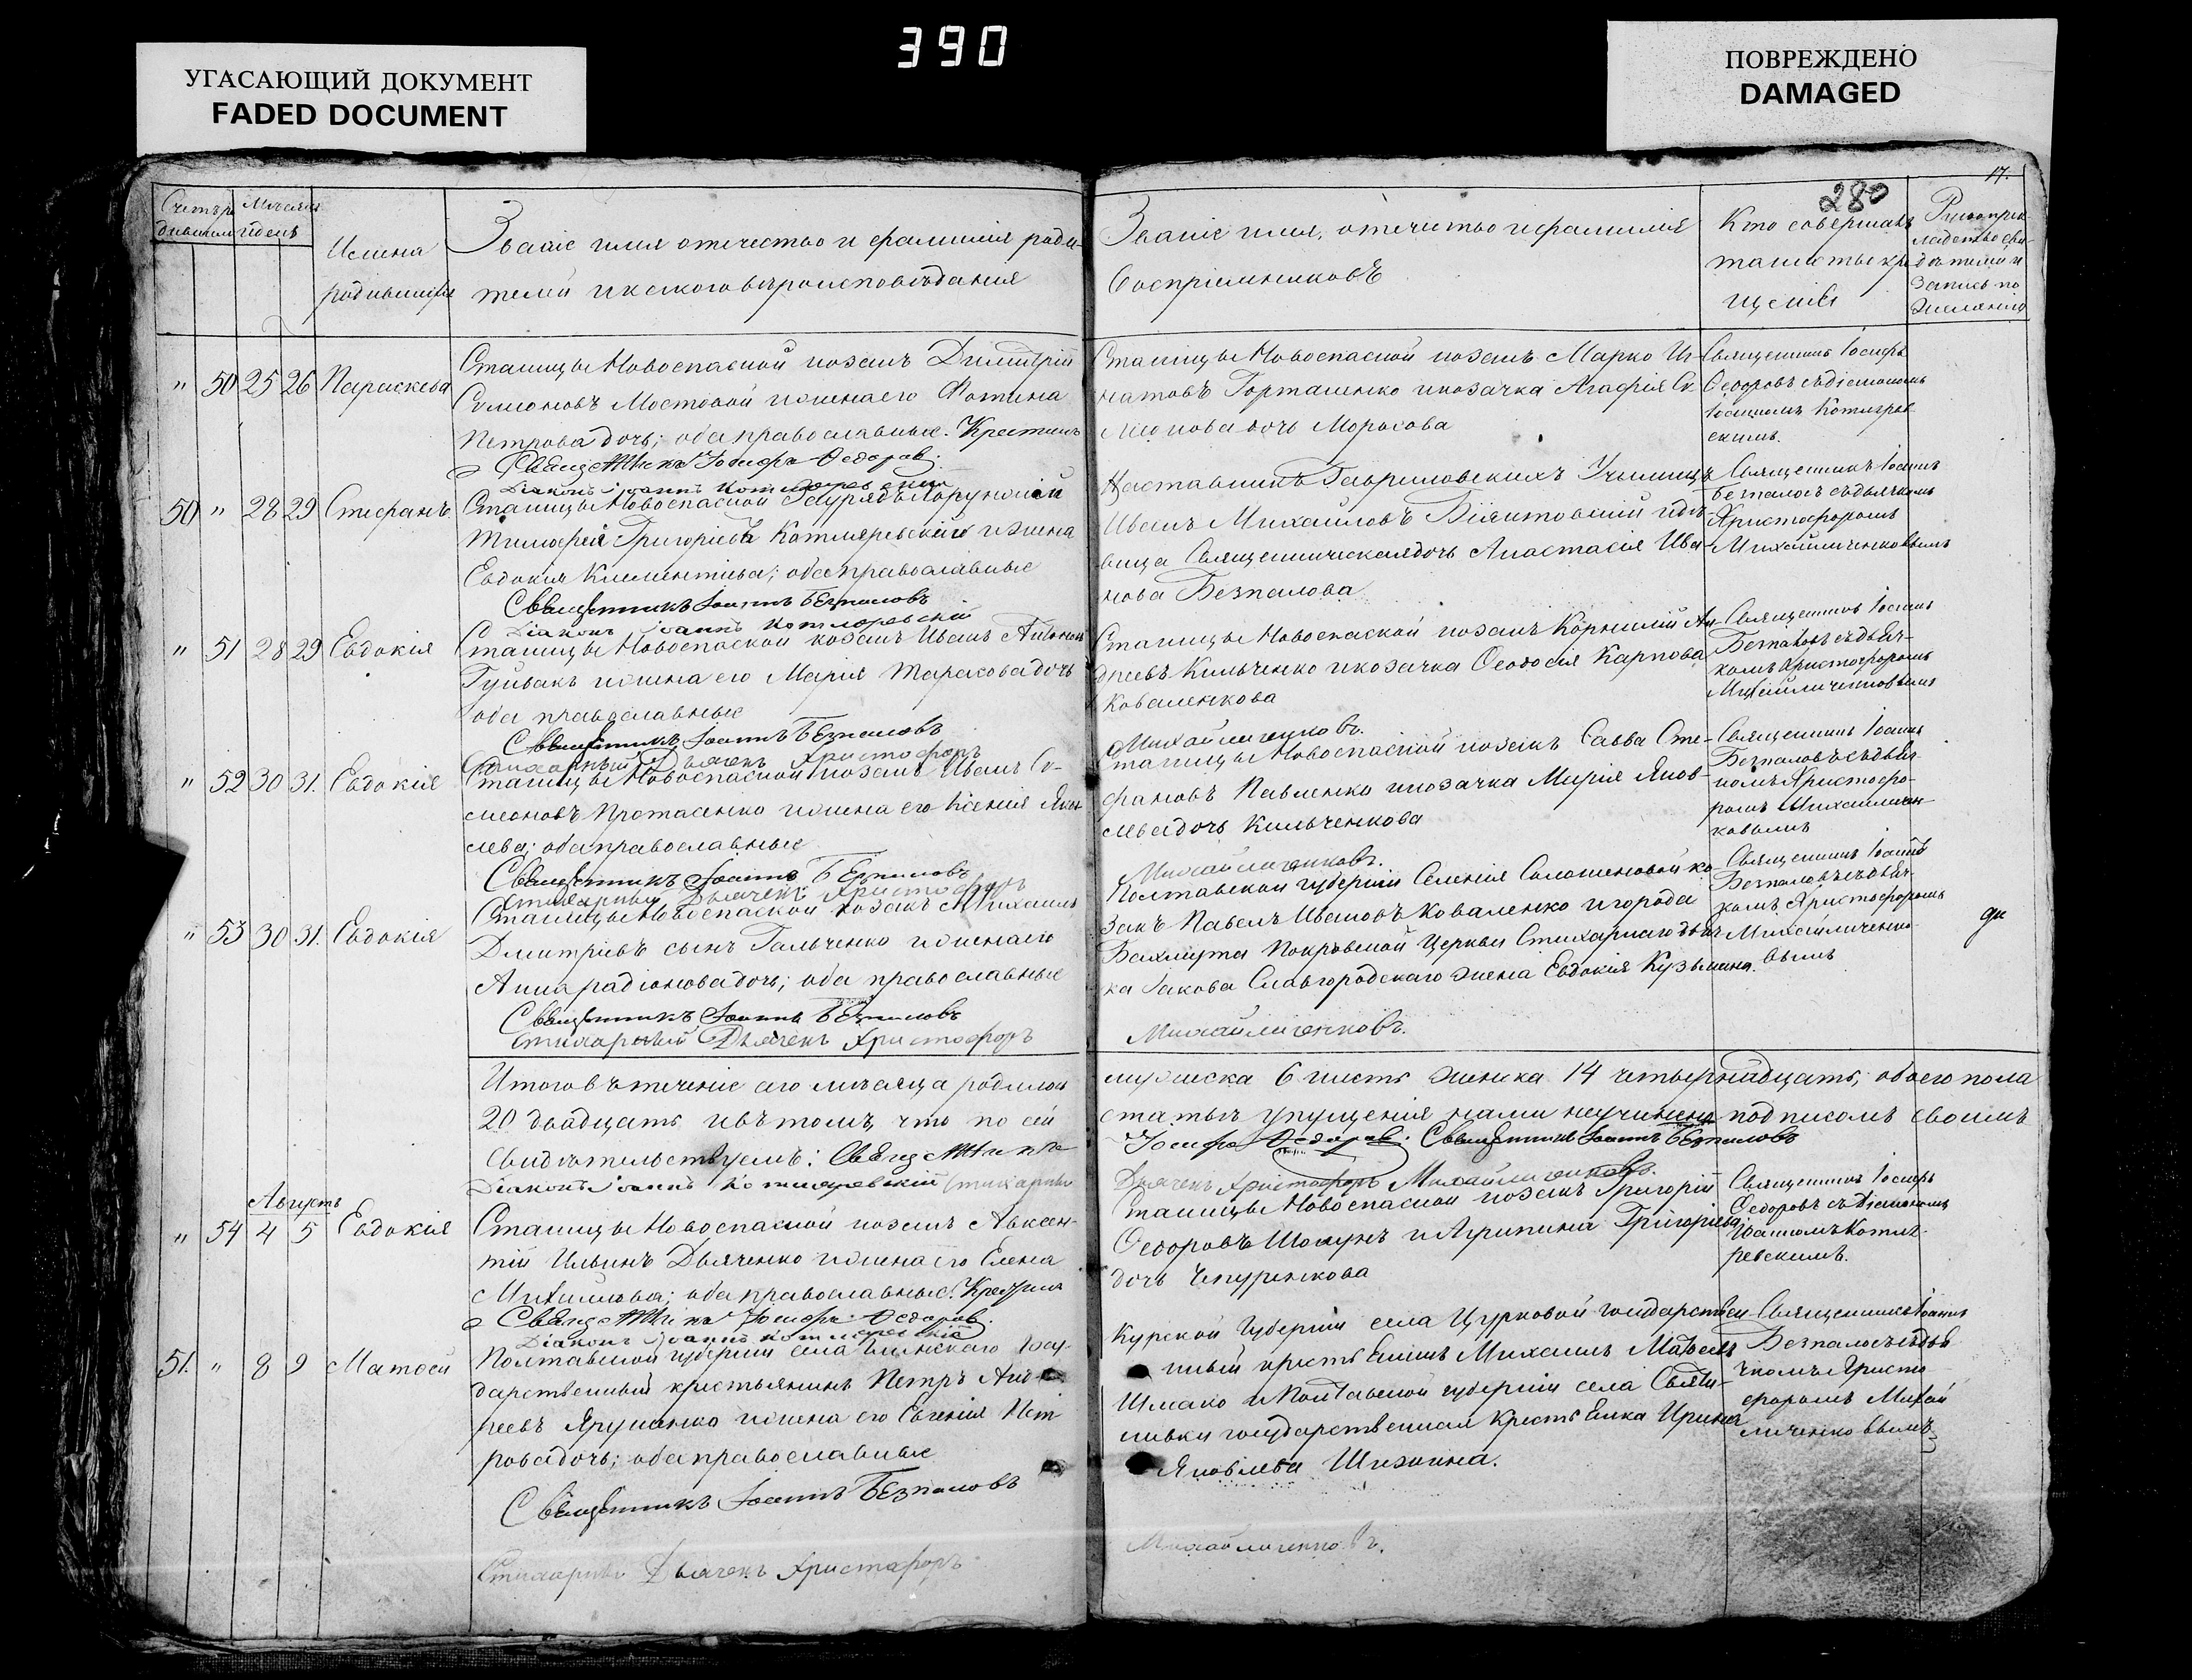 390
УГАСАЮЩИЙ ДОКУМЕНТ
FADED DOCUMENT
ПОВРЕЖДЕНО
DAMAGED
17.
280
Имена
родившихся
Званіе имя отечество и фамилія роди-
телей и какого вѣроисповѣданія
Званіе имя, отечество и фамилія
Воспріемниковъ
Кто совершалъ
таинство кре
щенія
" 50 25 26 Параскева
Станицы Новоспаской козакъ Димитрій
Мостовой и жена его Фотина
Петрова дочь; оба православные. Крестилъ
Священникъ Іосифъ Ѳедоровъ.
Діаконъ Іоаннъ Котляревскій
Станицы Новоспаской козакъ Марко Иг-
натовъ Горташенко и козачка Агафія Си
меонова дочь Морозова
Священникъ Іосифъ
Ѳедоровъ съ діакономъ
Іоанномъ Котляров
скимъ.
50 " 28 29 Стефанъ.
Станицы Новоспаской Зауряд Хорунжій
Тимофей Григоріевъ Котляревскій и жена
Евдокія Климентіева; оба православные
Священникъ Іоаннъ Безпаловъ
Діаконъ Іоаннъ Котляревскій
Наставникъ Гавриловскихъ Училищъ
Иванъ Михайловъ и дѣ-
вица Священническая дочь Анастасія Ива-
нова Безпалова
Священникъ Іоаннъ
Безпаловъ съ дьячкомъ
Христофоромъ
Михайличенковымъ
" 51 28 29 Евдокія
Станицы Новоспаской козакъ Иванъ Антонов
и жена его Марія Тарасова дочь
оба православные
Священникъ Іоаннъ Безпаловъ
Стихарный Дьячекъ Христофоръ
Станицы Новоспаской козакъ Корнилій Ан-
дреевъ Кильченко и козачка Ѳеодосія Карпова
Коваленкова
Михайличенковъ.
Священникъ Іоаннъ
Безпаловъ съ дьяч-
комъ Христофоромъ
Михайличенковымъ
" 52 30 31. Евдокія
Станицы Новоспаской козакъ Иванъ Си-
меоновъ Протасенко и жена его Ксенія Яков
лева; оба православные
Священникъ Іоаннъ Безпаловъ
Стихарный Дьячекъ Христофоръ
Станицы Новоспаской козакъ Савва Сте-
фановъ Павленко и козачка Марія Яков-
лева дочь Кильченкова
Михайличенковъ.
Священникъ Іоаннъ
Безпаловъ съ дьяч-
комъ Христофо-
ромъ Михайличен-
ковымъ
" 53 30 31. Евдокія
Станицы Новоспаской козакъ Михаилъ
Дмитріевъ сынъ Гальченко и жена его
Анна радіонова дочь; оба православные
Священникъ Іоаннъ Безпаловъ
Стихарный Дьячекъ Христофоръ
Полтавской губерніи Селенія Соломеновой ко
закъ Павелъ Ивановъ Коваленко и города
Бахмута Покровской Церкви Стихарнаго дьяч-
ка Іакова Славгородскаго жена Евдокія Кузьмина.
Михайличенковъ.
Священникъ Іоаннъ
Безпаловъ съ дьяч-
комъ Христофоромъ
Михайличенко-
вымъ
Итого въ теченіе сего мѣсяца родилось
мужеска 6 шесть женска 14 четырнадцать; обоего пола
20 двадцать и въ томъ, что по сей
статьи упущенія нами неучинено подписомъ своимъ
свидѣтельствуемъ: Священникъ
Іосифъ Ѳедоровъ. Священникъ Іоаннъ Безпаловъ
Діаконъ Іоаннъ Котляревскій Стихарный
Дьячекъ Христофоръ Михайличенковъ.
Августъ
" 54 4 5 Евдокія
Станицы Новоспаской козакъ Авксен-
тій Ильинъ Дьяченко и жена его Елена
Михайлова; оба православные. Крестилъ
Священникъ Іосифъ Ѳедоров.
Діаконъ Іоаннъ Котляревскій
Станицы Новоспаской козакъ Григорій
Ѳедоровъ и Агрипина Григорьева
дочь Чепурнкова
Священникъ Іосифъ
Ѳедоровъ съ Діакономъ
Іоанномъ Котля-
ревскимъ.
51. " 8 9 Матѳей
Полтавской губерніи села Госу-
дарственный крестьянинъ Петръ Анд
реевъ и жена его Евгенія Пет
рова дочь; оба православные
Священникъ Іоаннъ Безпаловъ
Стихарный Дьячекъ Христофоръ
Курской Губерніи села Цурковой государствен
ный крестьянинъ Михаилъ
Шмако и Полтавской губерніи села
государственная крестьянка Ирина
Яковлева
Михайличенковъ.
Священникъ Іоаннъ
Безпаловъ съ дья
чкомъ Христо
форомъ Михай
личенковымъ